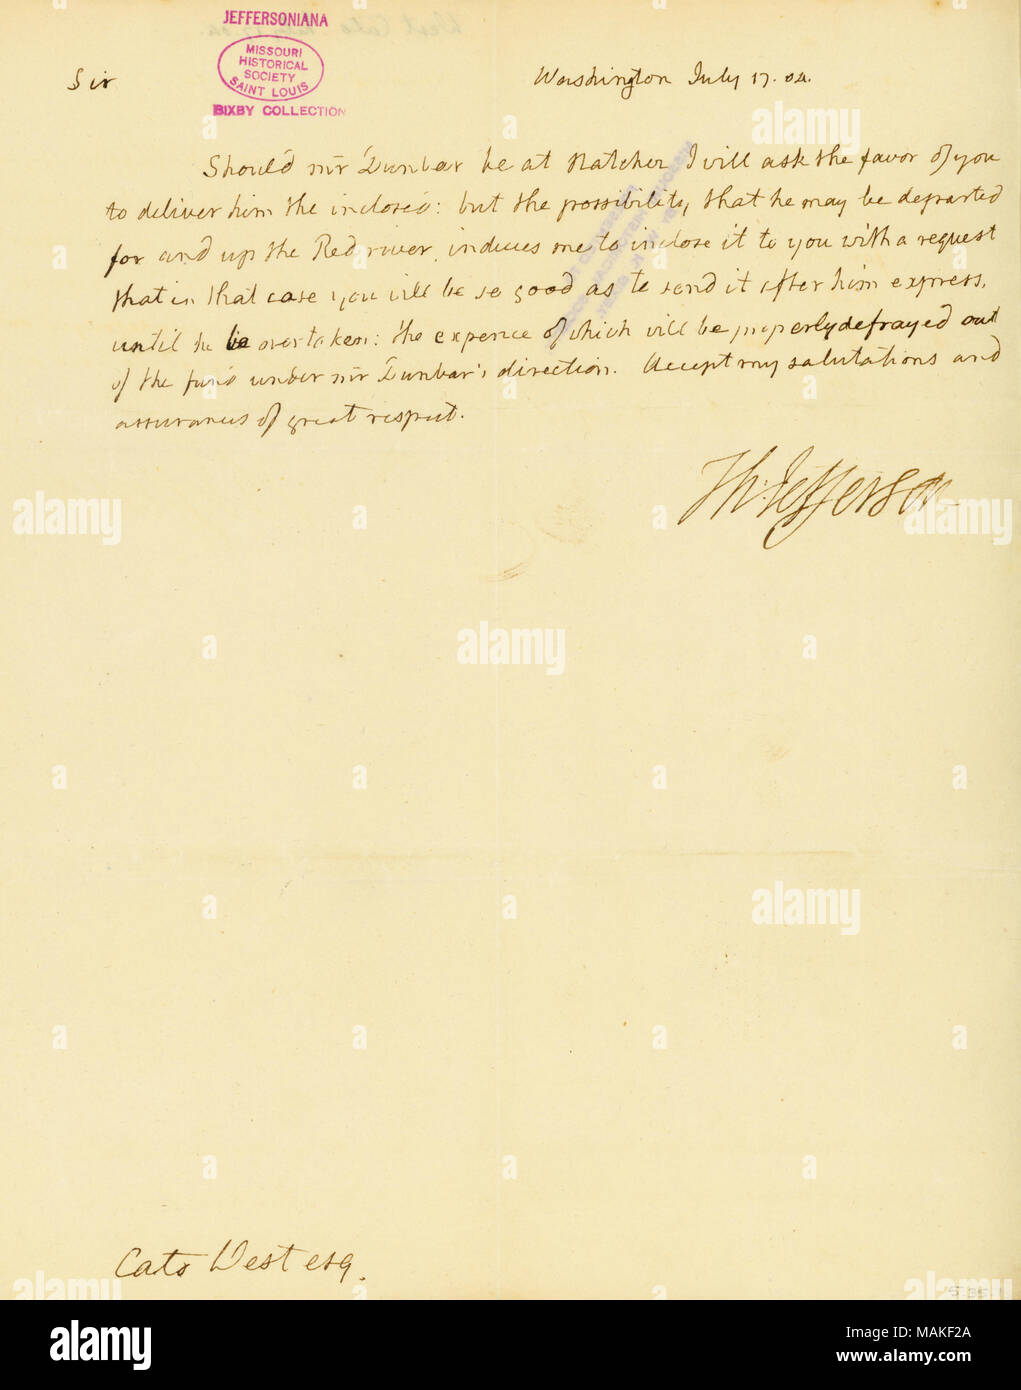 JEFFERSONIANA
MISSOURI
HISTORICAL
SOCIETY
SAINT LOUIS
BIXBY COLLECTION
Sir
Washington July 17. 04.
Should mr Dunbar be at Natchez I will ask the favor of you
to deliver him the inclosed: but the possibility, that he may be departed
for and up the Red river, induces me to inclose it to you with a request
that in that case you will be so good as to send it after him express,
until he be overtaken: the expence of which will be properly defrayed out
of the fund under mr Dunbar's direction. Accept my salutations and
assurances of great respect.
Th: Jefferson
Cato West esq.
alamy
Image ID: MAKF2A
www.alamy.com